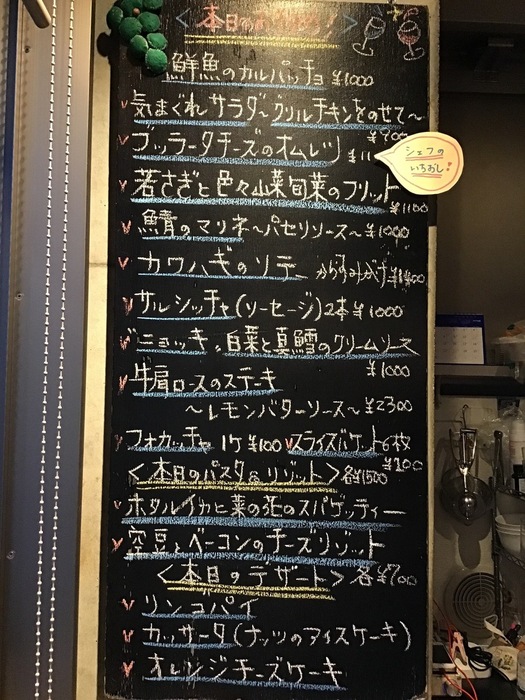 ＜本日のおすすめ！＞
鮮魚のカルパッチョ ¥1000
気まぐれサラダ〜グリルチキンをのせて〜
¥700
ブッラータチーズのオムレツ
シェフの
いちおし!
若さぎと色々山菜旬菜のフリット
¥1100
鯖のマリネ〜パセリソース〜 ¥1000
カワハギのソテー からすみがけ
サルシッチャ(ソーセージ)2本 ¥1000
ニョッキ、白菜と真鱈のクリームソース
¥1000
牛肩ロースのステーキ
〜レモンバターソース〜 ¥2300
フォカッチャ 1ケ ¥100 スライスバゲット6枚
¥100
＜本日のパスタ&リゾット＞各¥1500
ホタルイカと菜の花のスパゲッティー
空豆とベーコンのチーズリゾット
＜本日のデザート＞各¥700
リンゴパイ
カッサータ(ナッツのアイスケーキ)
オレンジチーズケーキ